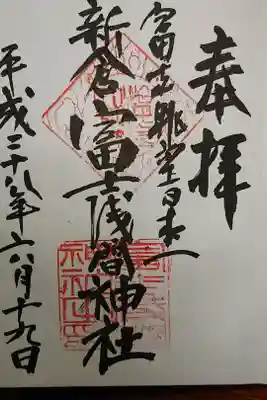 奉拝
富士眺望日本一
新倉山富士浅間神社
平成二十八年六月十九日